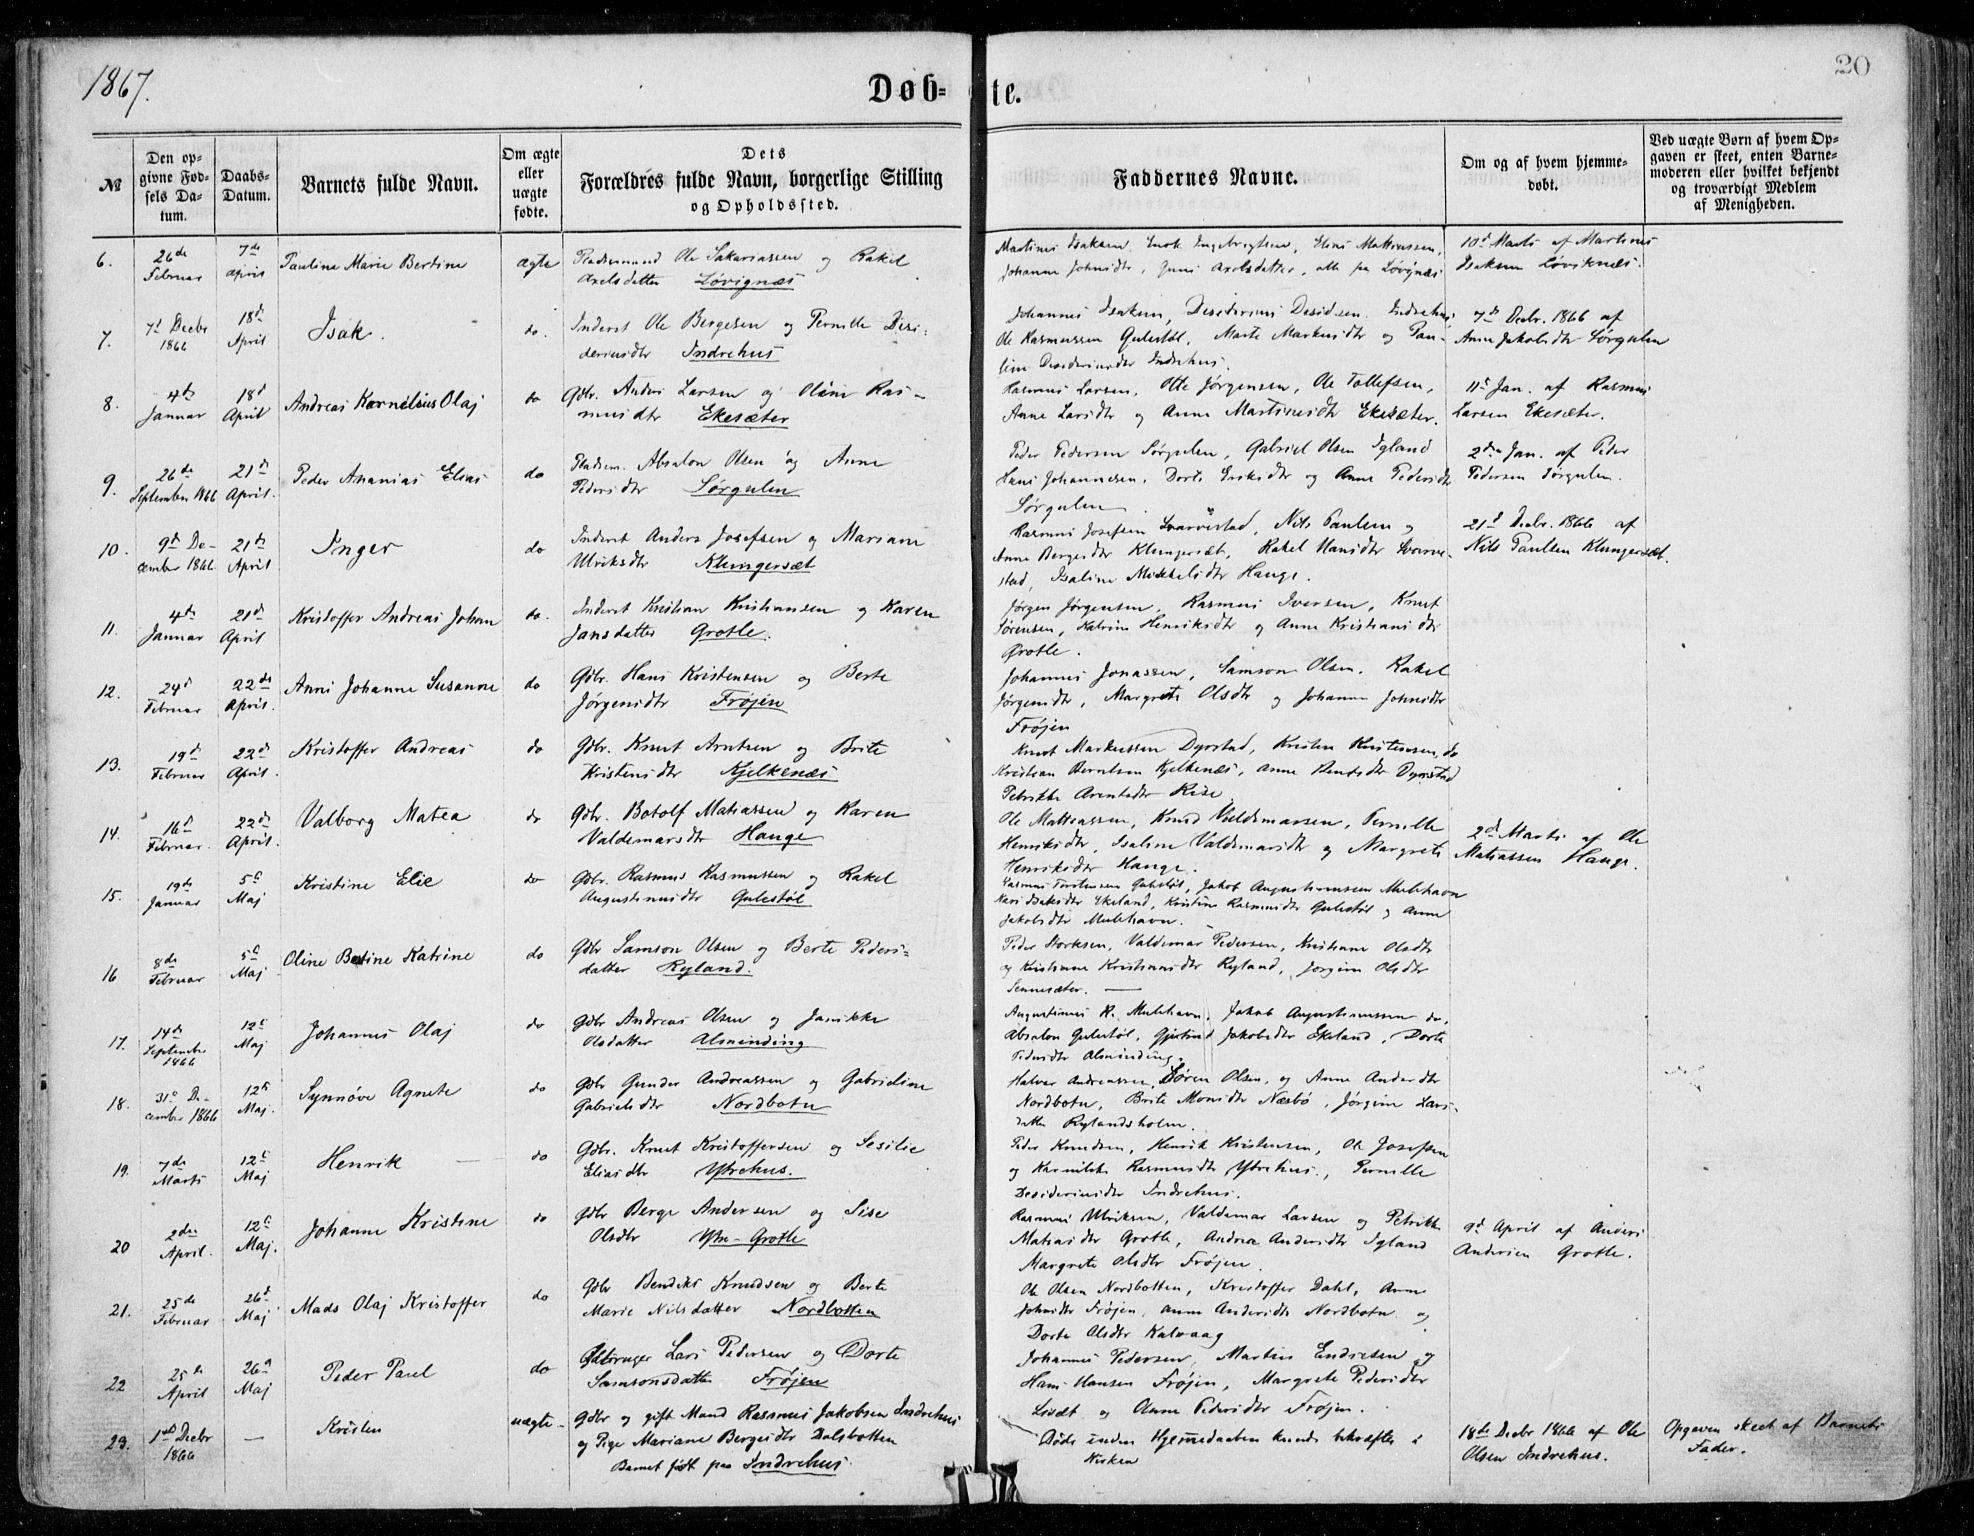 1867.
Døb- te.
20
№
Den op-
givne Fød-
sels Da-
tum.
Daabs-
Datum.
Barnets fulde Navn.
Om ægte
eller
uægte
fødte.
Dets
Forældres fulde Navn, borgerlige Stilling
og Opholdssted.
Faddernes Navne.
Om og af hvem hjemme-
døbt.
Ved uægte Børn af hvem Op-
gaven er skeet, enten Barne-
moderen eller hvilket bekjendt
og troværdigt Medlem
af Menigheden.
6.
26de
Februar
7de
april
Pauline Marie Bertine
ægte
Pladsemand Ole Sakariassen og Rakel
Axelsdatter Løvignæs
Martinus Isaksen, Enok Engebrigtsen, Elias Mathiassen,
Johanne Johnsdtr, Axelsdatter, alle paa Løvignæs
10d Marts af Martinus
Isaksen Løviknæs.
7.
7d Decbr
1866
18de
April
Isak.
do.
Inderst Ole Bergesen og Pernille Desi-
deriusdtr Indrehus
Johannes Isaksen, Desiderius Desidsen Indrehus
Ole Rasmussen Gulestøl, Marte Markusdtr og Pau-
line Desideriusdtr Indrehus.
7de Decbr. 1866 af
Anne Jakobsdtr Sørgulen
8.
4de
Januar
18d
April
Andreas Kornelius Olaj
do
Gdbr. Anders Larsen og Oline Ras-
musdtr Ekesæter
Rasmus Larsen, Otte Jørgensen, Ole Tollefsen,
Anne Larsdtr og Anne Martinusdtr Ekesæter.
11te Jan. af Rasmus
Larsen Ekesæter.
9.
26de
September 1866
21de
April.
Peder Ananias Elias
do
Pladsm. Absalon Olsen og Anne
Pedersdtr Sørgulen
Peder Pedersen Sørgulen, Gabriel Olsen Igland
Hans Johannesen, Dorte Eriksdtr og Anne Pedersdtr
Sørgulen
2den Jan. af Peder
Pedersen Sørgulen.
10.
9de De-
cember 1866.
21de
April
Inger
do
Inderst Anders Josefsen og Mariane
Ulriksdtr Klungersæt
Rasmus Josefsen Svarvestad, Nils Paulsen og
Anne Bergesdtr Klungersæt, Rakel Hansdtr Svarve-
stad, Isaline Mikkelsdtr Hauge.
21d Decbr. 1866 af
Nils Paulsen Klungersæt.
11.
4de
Januar
21de
April
Kristoffer Andreas Johan
do.
Inderst Kristian Kristiansen og Karen
Jansdatter Grotle.
Jørgen Jørgensen, Rasmus Iversen, Knut
Sørensen, Katrine Henriksdtr og Anne Kristiansdtr
Grotle.
12.
24d
Februar
22de
April.
Anni Johanne Susanne
do
Gdbr. Hans Kristensen og Berte
Jørgensdtr Frøjen
Johannes Jonassen, Samson Olsen, Rakel
Jørgensdtr, Margrete Olsdtr og Johanne Johnsdtr
Frøjen
13.
19d
Februar
22de
April.
Kristoffer Andreas
do
Gdbr. Knut Arntsen og Brite
Kristensdtr Kjelkenæs
Knut Markussen Dyrstad, Kristen Kristensen do
Kristian Berntsen Kjelkenæs, Anne Dyrstad
Petrikke Arentsdtr Rise
14.
16d
Februar.
22de
April.
Valborg Matea
do
Gdbr. Botolf Matiassen og Karen
Valdemarsdtr Hauge
Ole Mathiassen, Knud Valdemarsen, Pernille
Henriksdtr, Isaline Valdemarsdtr og Margrete
Henriksdtr Hauge.
2d Marts af Ole
Matiassen Hauge.
15.
19de
Januar
5te
Maj
Kristine Elie
do
Gdbr. Rasmus Rasmussen og Rakel
Augustinusdtr Gulestøl
Rasmus Torstensen Gulestøl, Jakob Augustinussen Mulehavn
Kari Isaksdtr Ekeland, Kristine Rasmusdtr Gulestøl og Anne
Jakobsdtr Mulehavn.
16
8de
Februar
5te
Maj
Oline Bertine Katrine
do
Gdbr Samson Olsen og Berte Peders-
datter Ryland.
Peder Storksen, Valdemar Pedersen, Kristiane Olsdtr
og Kristianne Kristiansdtr Ryland, Jørgine Olsdtr
Sennesæter.
17.
14de
September
1866
12te
Maj
Johannes Olaj
do
Gdbr Andreas Olsen og Janikke
Olsdatter Almending
Augustinus R. Mulehavn, Jakob Augustinussen do,
Absalon Gulestøl, Gjertrud Jakobsdtr Ekeland, Dorte
Pedersdtr Almending.
18.
31te De-
cember 1866
12te
Maj.
Synnøve Agnete
do
Gdbr Gunder Andreassen og Gabrieline
Gabrielsdtr Nordbotn
Halvor Andreassen, Søren Olsen, og Anne Andersdtr
Nordbotn, Brite Monsdtr Næsbø, Jørgine Lars-
datter Rylandsholm.
19.
7de
Marts
12te
Maj
Henrik
do
Gdbr. Knut Kristoffersen og Sesilie
Eliasdtr Ytrehus.
Peder Knudsen, Henrik Kristensen, Ole Josefsen
og Karnilske Rasmusdtr Ytrehus, Pernille
Desideriusdtr Indrehus.
20
2den
April.
12te
Maj.
Johanne Kristine
do
Gdbr Berge Andersen og Sise
Olsdtr Ytre-Grotle
Rasmus Ulriksen, Valdemar Larsen og Petrikke
Matiasdtr Grotle, Andrea Andersdtr Igland
Margrete Olsdtr Frøjen.
9d April af Anders
Andersen Grotle.
21.
25de
Februar
26de
Maj
Mads Olaj Kristoffer
do
Gdbr Bendiks Knudsen og Berte
Marie Nilsdatter Nordbotten
Ole Olsen Nordbotten, Kristoffer Dahl, Anne
Johnsdtr Frøjen, Anne Andersdtr Nordbotn og
Dorte Olsdtr Kalvaag
22
25de
April
26de
Maj
Peder Parel
do
Gdbruger Lars Pedersen og Dorte
Samsonsdatter Frøjen
Johannes Pedersen, Martin Endresen og
Hans Hansen Frøjen, Margrete Pedersdtr
Levæt og Anne Pedersdtr Frøjen.
23.
1ste Decbr
1866
—
Kristen
uægte
Gdbr og gift Mand Rasmus Jakobsen Indrehus
og Pige Mariane Bergesdtr Dalsbotten
Barnet født paa Indrehus.
Døde inden Hjemmedaaben kunde bekræftes i
Kirken
18de Decbr 1866 af Ole
Olsen Indrehus.
Opgaven skeet af Barnets
Fader.